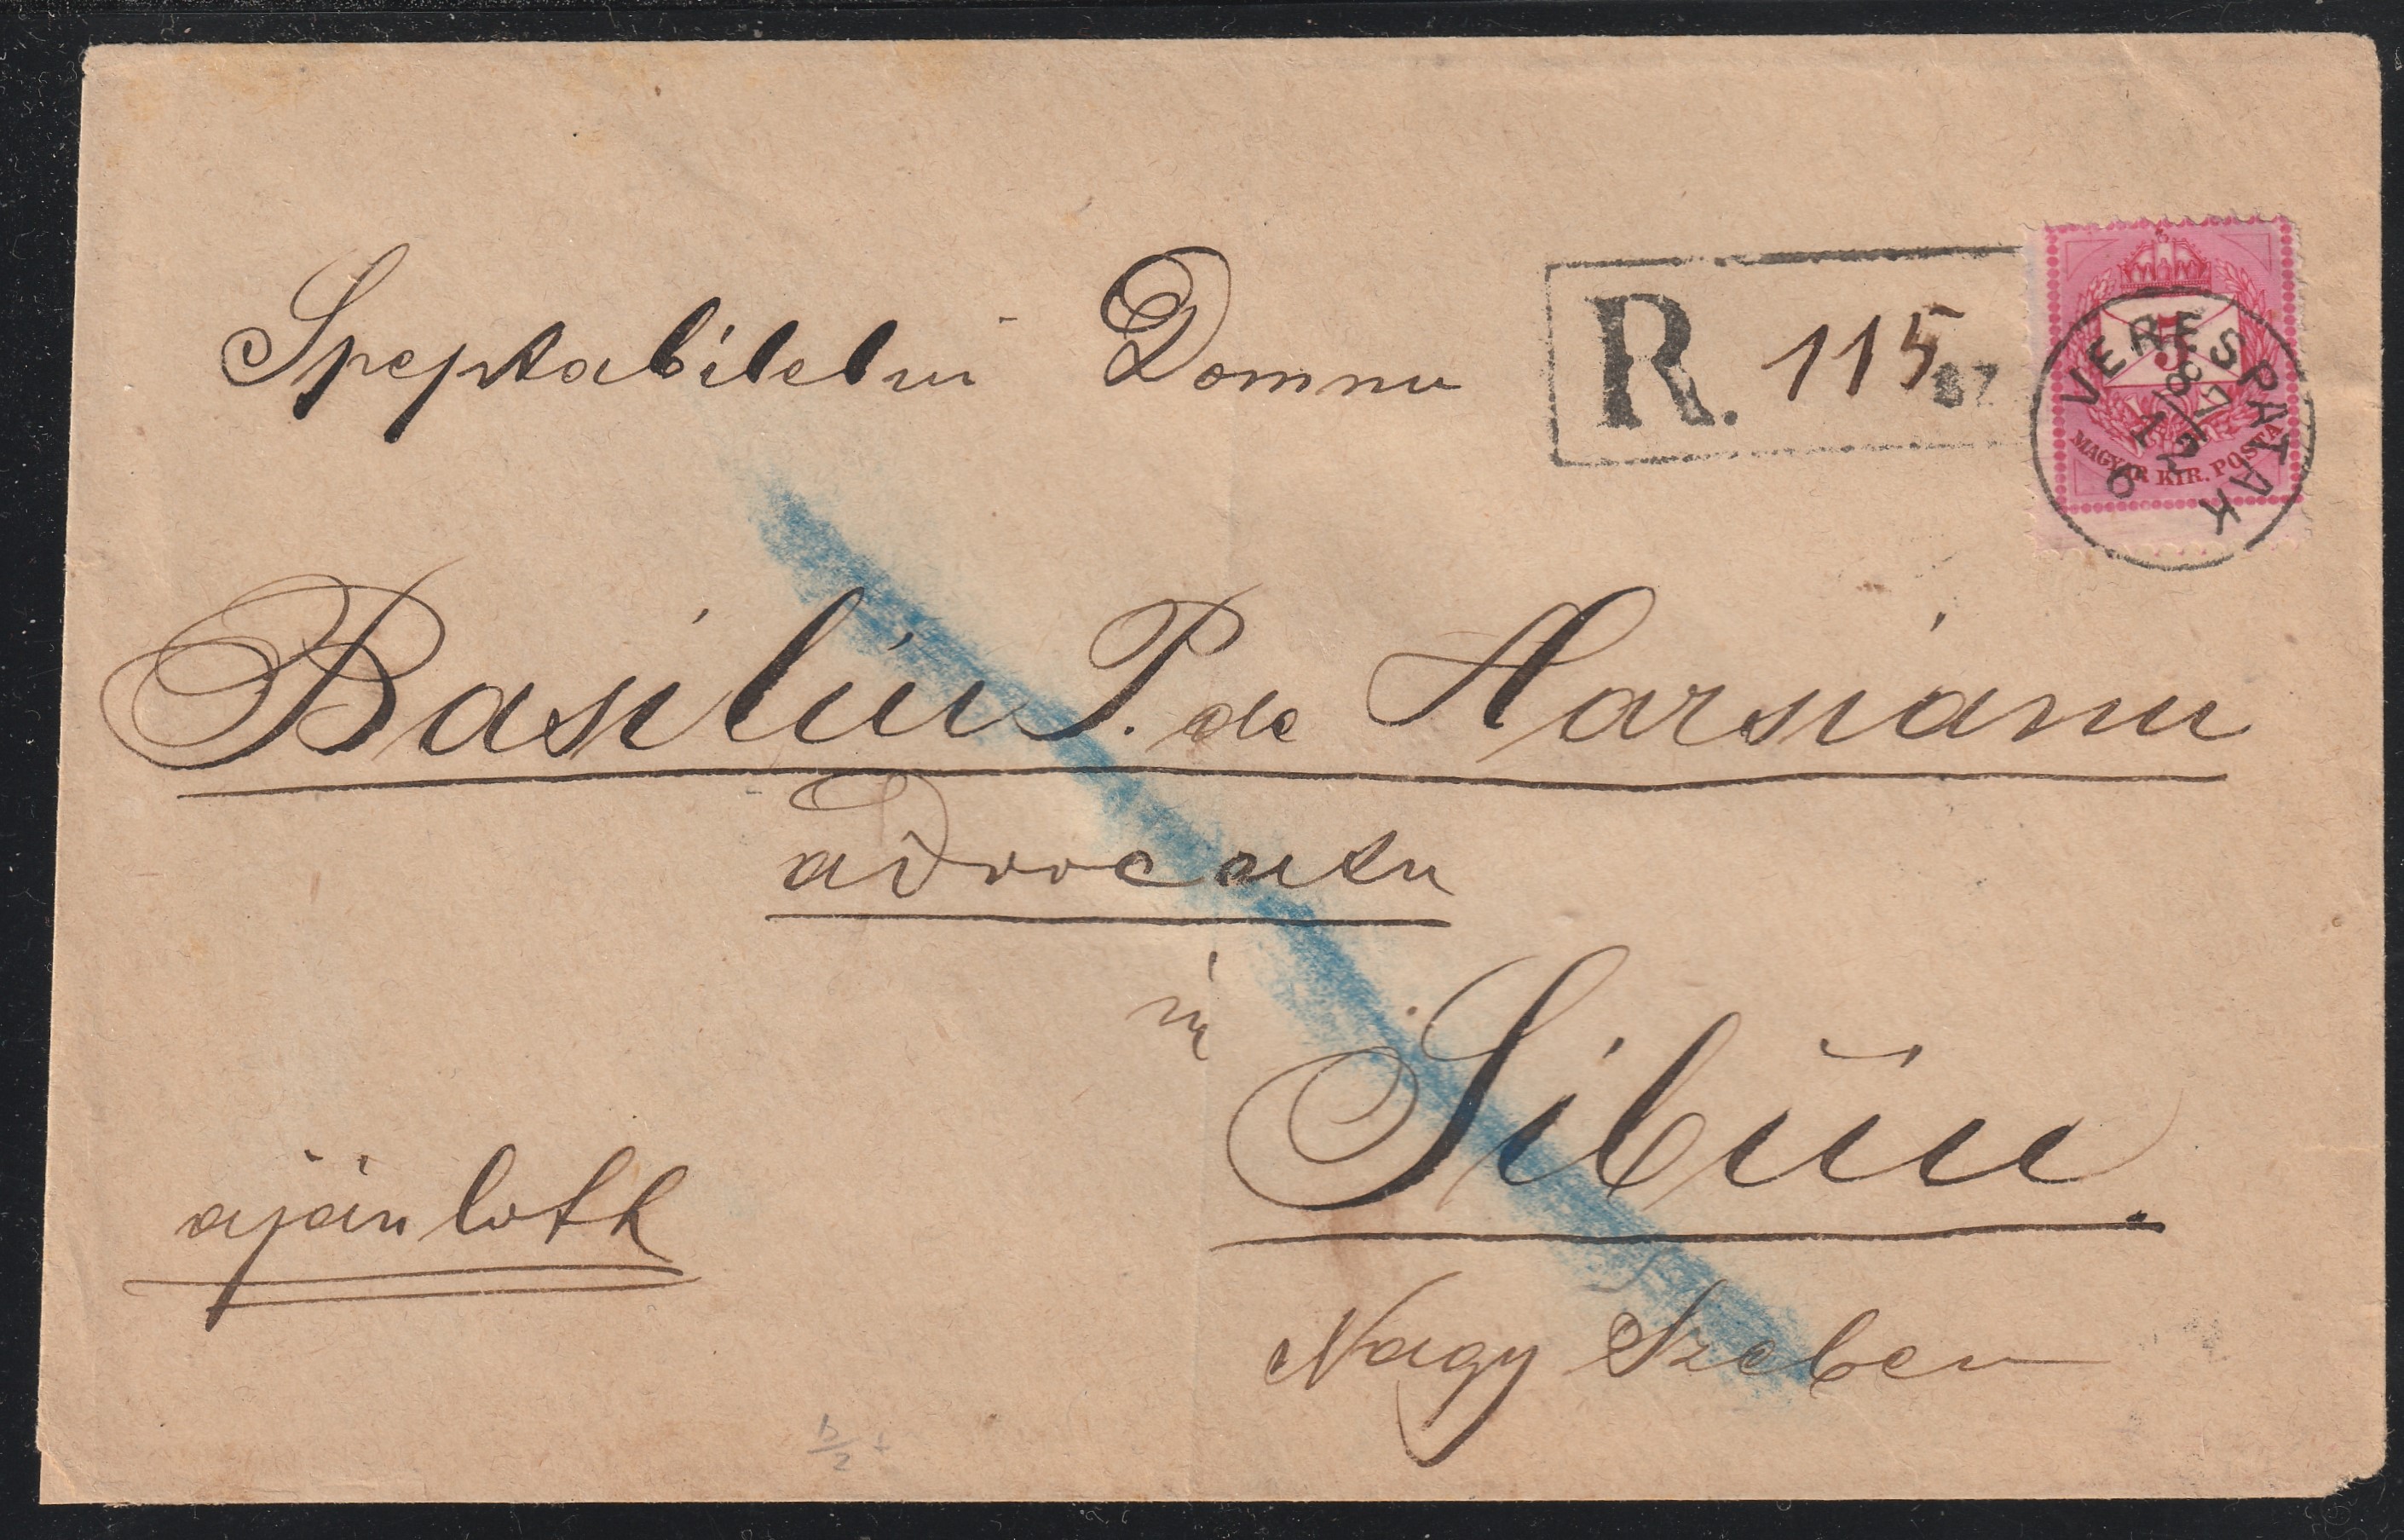 Speptabilelui Domnu
R. 115
5
MAGYAR KIR. POSTA
VERESPATAK
87
12
6
Basiliu P. de Harsianu
advocatu
in
Sibiiu.
ajánlott
Nagy Szeben